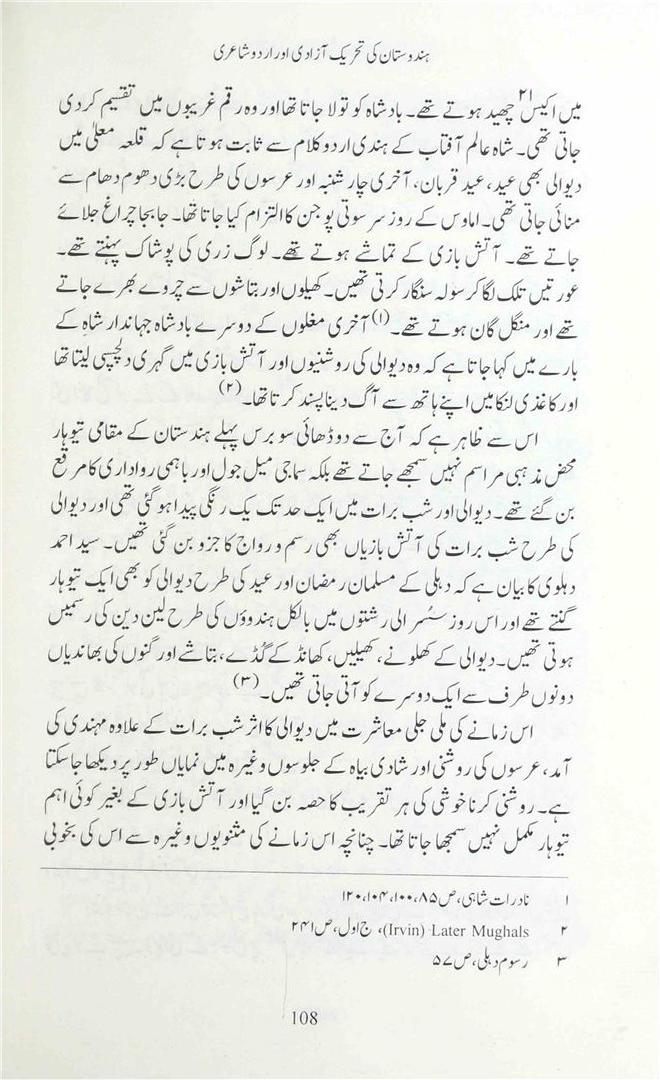 ہندوستان کی تحریک آزادی اور اردو شاعری
میں اکیس ۲۱ چھید ہوتے تھے۔ بادشاہ کو تولا جاتا تھا اور وہ رقم غریبوں میں تقسیم کر دی
جاتی تھی۔ شاہ عالم آفتاب کے ہندی اردو کلام سے ثابت ہوتا ہے کہ قلعہ معلیٰ میں
دیوالی بھی عید، عید قربان، آخری چار شنبہ اور عرسوں کی طرح بڑی دھوم دھام سے
منائی جاتی تھی۔ اماوس کے روز سرسوتی پوجن کا التزام کیا جاتا تھا۔ جابجا چراغ جلائے
جاتے تھے۔ آتش بازی کے تماشے ہوتے تھے۔ لوگ زری کی پوشاک پہنتے تھے۔
عورتیں تلک لگا کر سولہ سنگار کرتی تھیں۔ کھیلوں اور بتاشوں سے چروے بھرے جاتے
تھے اور منگل گان ہوتے تھے۔(۱) آخری مغلوں کے دوسرے بادشاہ جہاندار شاہ کے
بارے میں کہا جاتا ہے کہ وہ دیوالی کی روشنیوں اور آتش بازی میں گہری دلچسپی لیتا تھا
اور کاغذی لنکا میں اپنے ہاتھ سے آگ دینا پسند کرتا تھا۔(۲)
اس سے ظاہر ہے کہ آج سے دو ڈھائی سو برس پہلے ہندستان کے مقامی تیوہار
محض مذہبی مراسم نہیں سمجھے جاتے تھے بلکہ سماجی میل جول اور باہمی رواداری کا مرقع
بن گئے تھے۔ دیوالی اور شب برات میں ایک حد تک یک رنگی پیدا ہو گئی تھی اور دیوالی
کی طرح شب برات کی آتش بازیاں بھی رسم و رواج کا جزو بن گئی تھیں۔ سید احمد
دہلوی کا بیان ہے کہ دہلی کے مسلمان رمضان اور عید کی طرح دیوالی کو بھی ایک تیوہار
گنتے تھے اور اس روز سُسرالی رشتوں میں بالکل ہندوؤں کی طرح لین دین کی رسمیں
ہوتی تھیں۔ دیوالی کے کھلونے، کھیلیں، کھانڈ کے گڈے، بتاشے اور گنوں کی بھاندیاں
دونوں طرف سے ایک دوسرے کو آتی جاتی تھیں۔(۳)
اس زمانے کی ملی جلی معاشرت میں دیوالی کا اثر شب برات کے علاوہ مہندی کی
آمد، عرسوں کی روشنی اور شادی بیاہ کے جلوسوں وغیرہ میں نمایاں طور پر دیکھا جا سکتا
ہے۔ روشنی کرنا خوشی کی ہر تقریب کا حصہ بن گیا اور آتش بازی کے بغیر کوئی اہم
تیوہار مکمل نہیں سمجھا جاتا تھا۔ چنانچہ اس زمانے کی مثنویوں وغیرہ سے اس کی بخوبی
۱ نادرات شاہی، ص ۸۵، ۱۰۰، ۱۰۴، ۱۲۰
۲ Later Mughals (Irvin)، ج اول، ص ۲۴۱
۳ رسوم دہلی، ص ۵۷
108